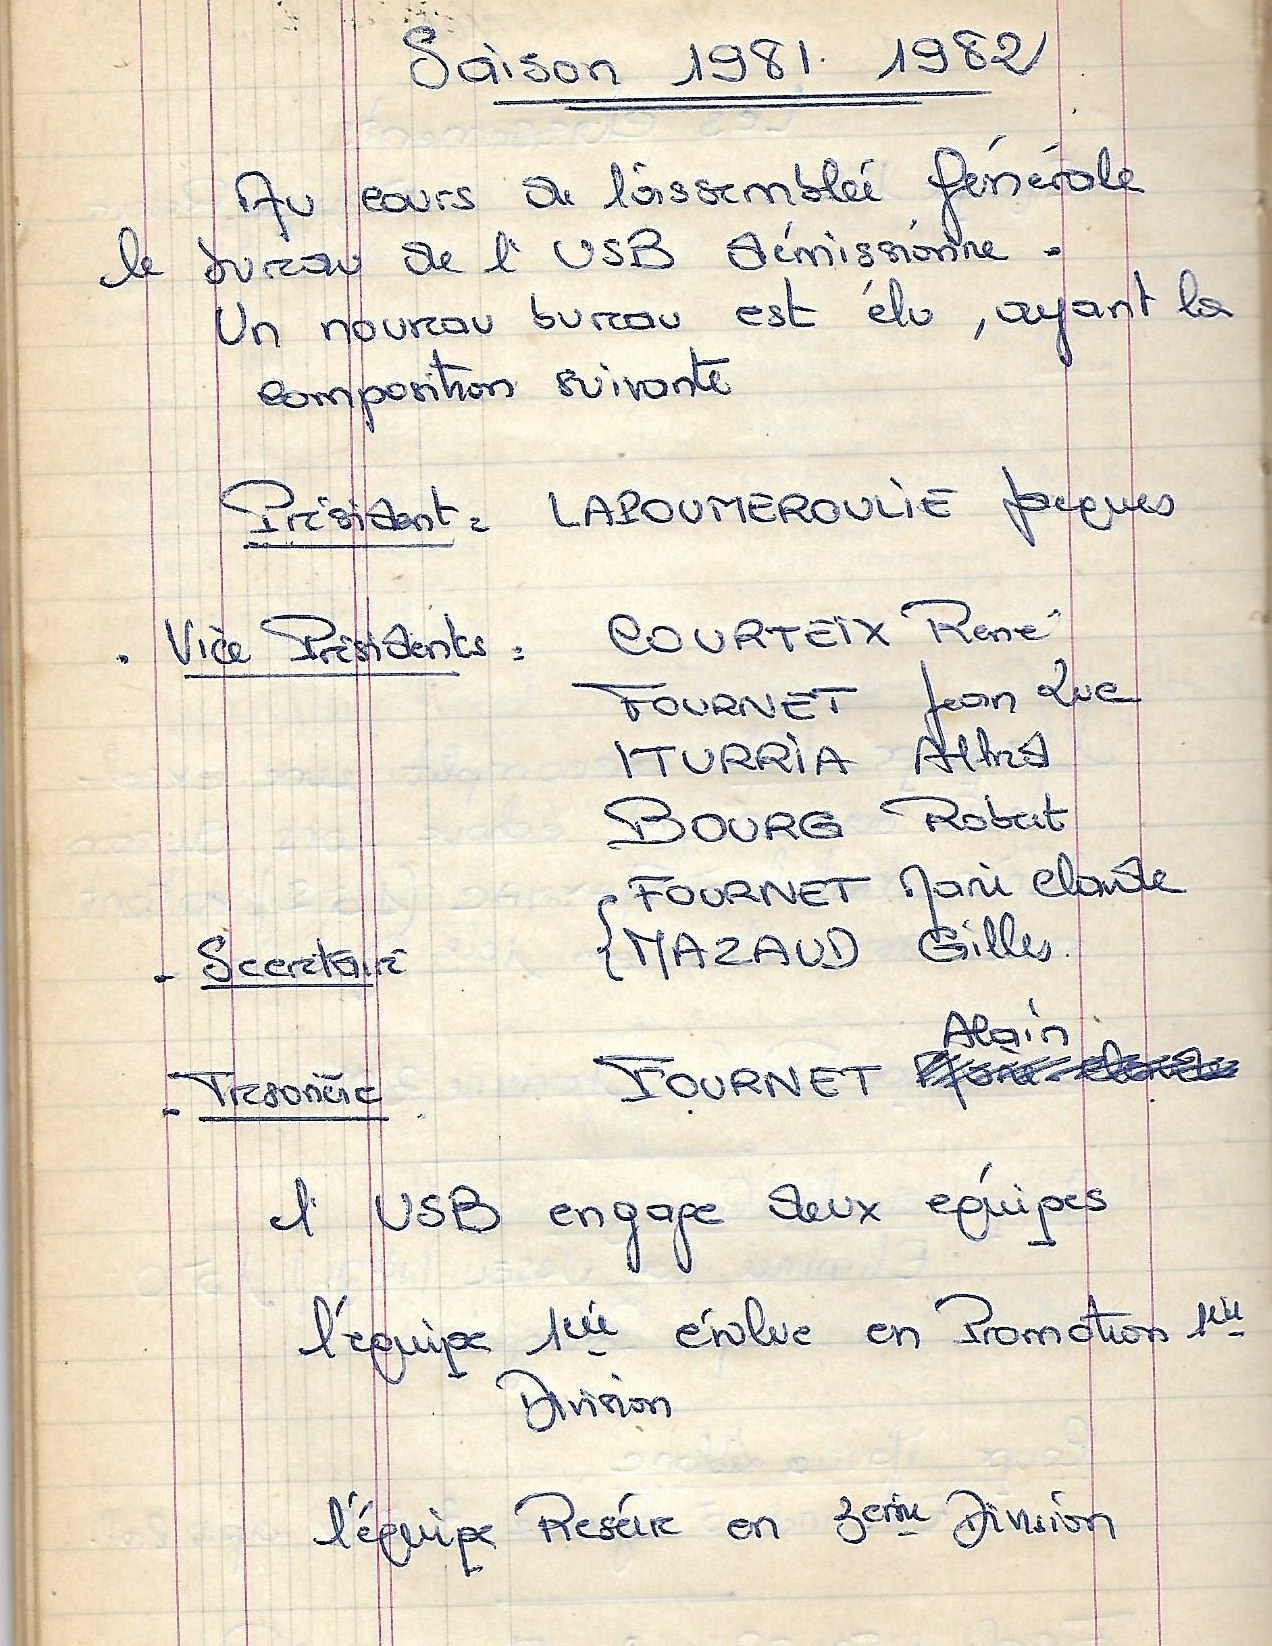 Saison 1981. 1982
Au cours de l'assemblée générale
le bureau de l'USB démissionne.
Un nouveau bureau est élu, ayant la
composition suivante
Président : LAPOUMEROULIE Jacques
. Vice Présidents : COURTEIX René
FOURNET Jean Luc
ITURRIA Alfred
BOURG Robert
{ FOURNET Marie Claude
- Secretaire { MAZAUD Gilles.
Alain
- Tresorière FOURNET
l'USB engage deux équipes
l'équipe 1ière évolue en Promotion 1ière
Division
l'équipe Réserve en 3eme Division